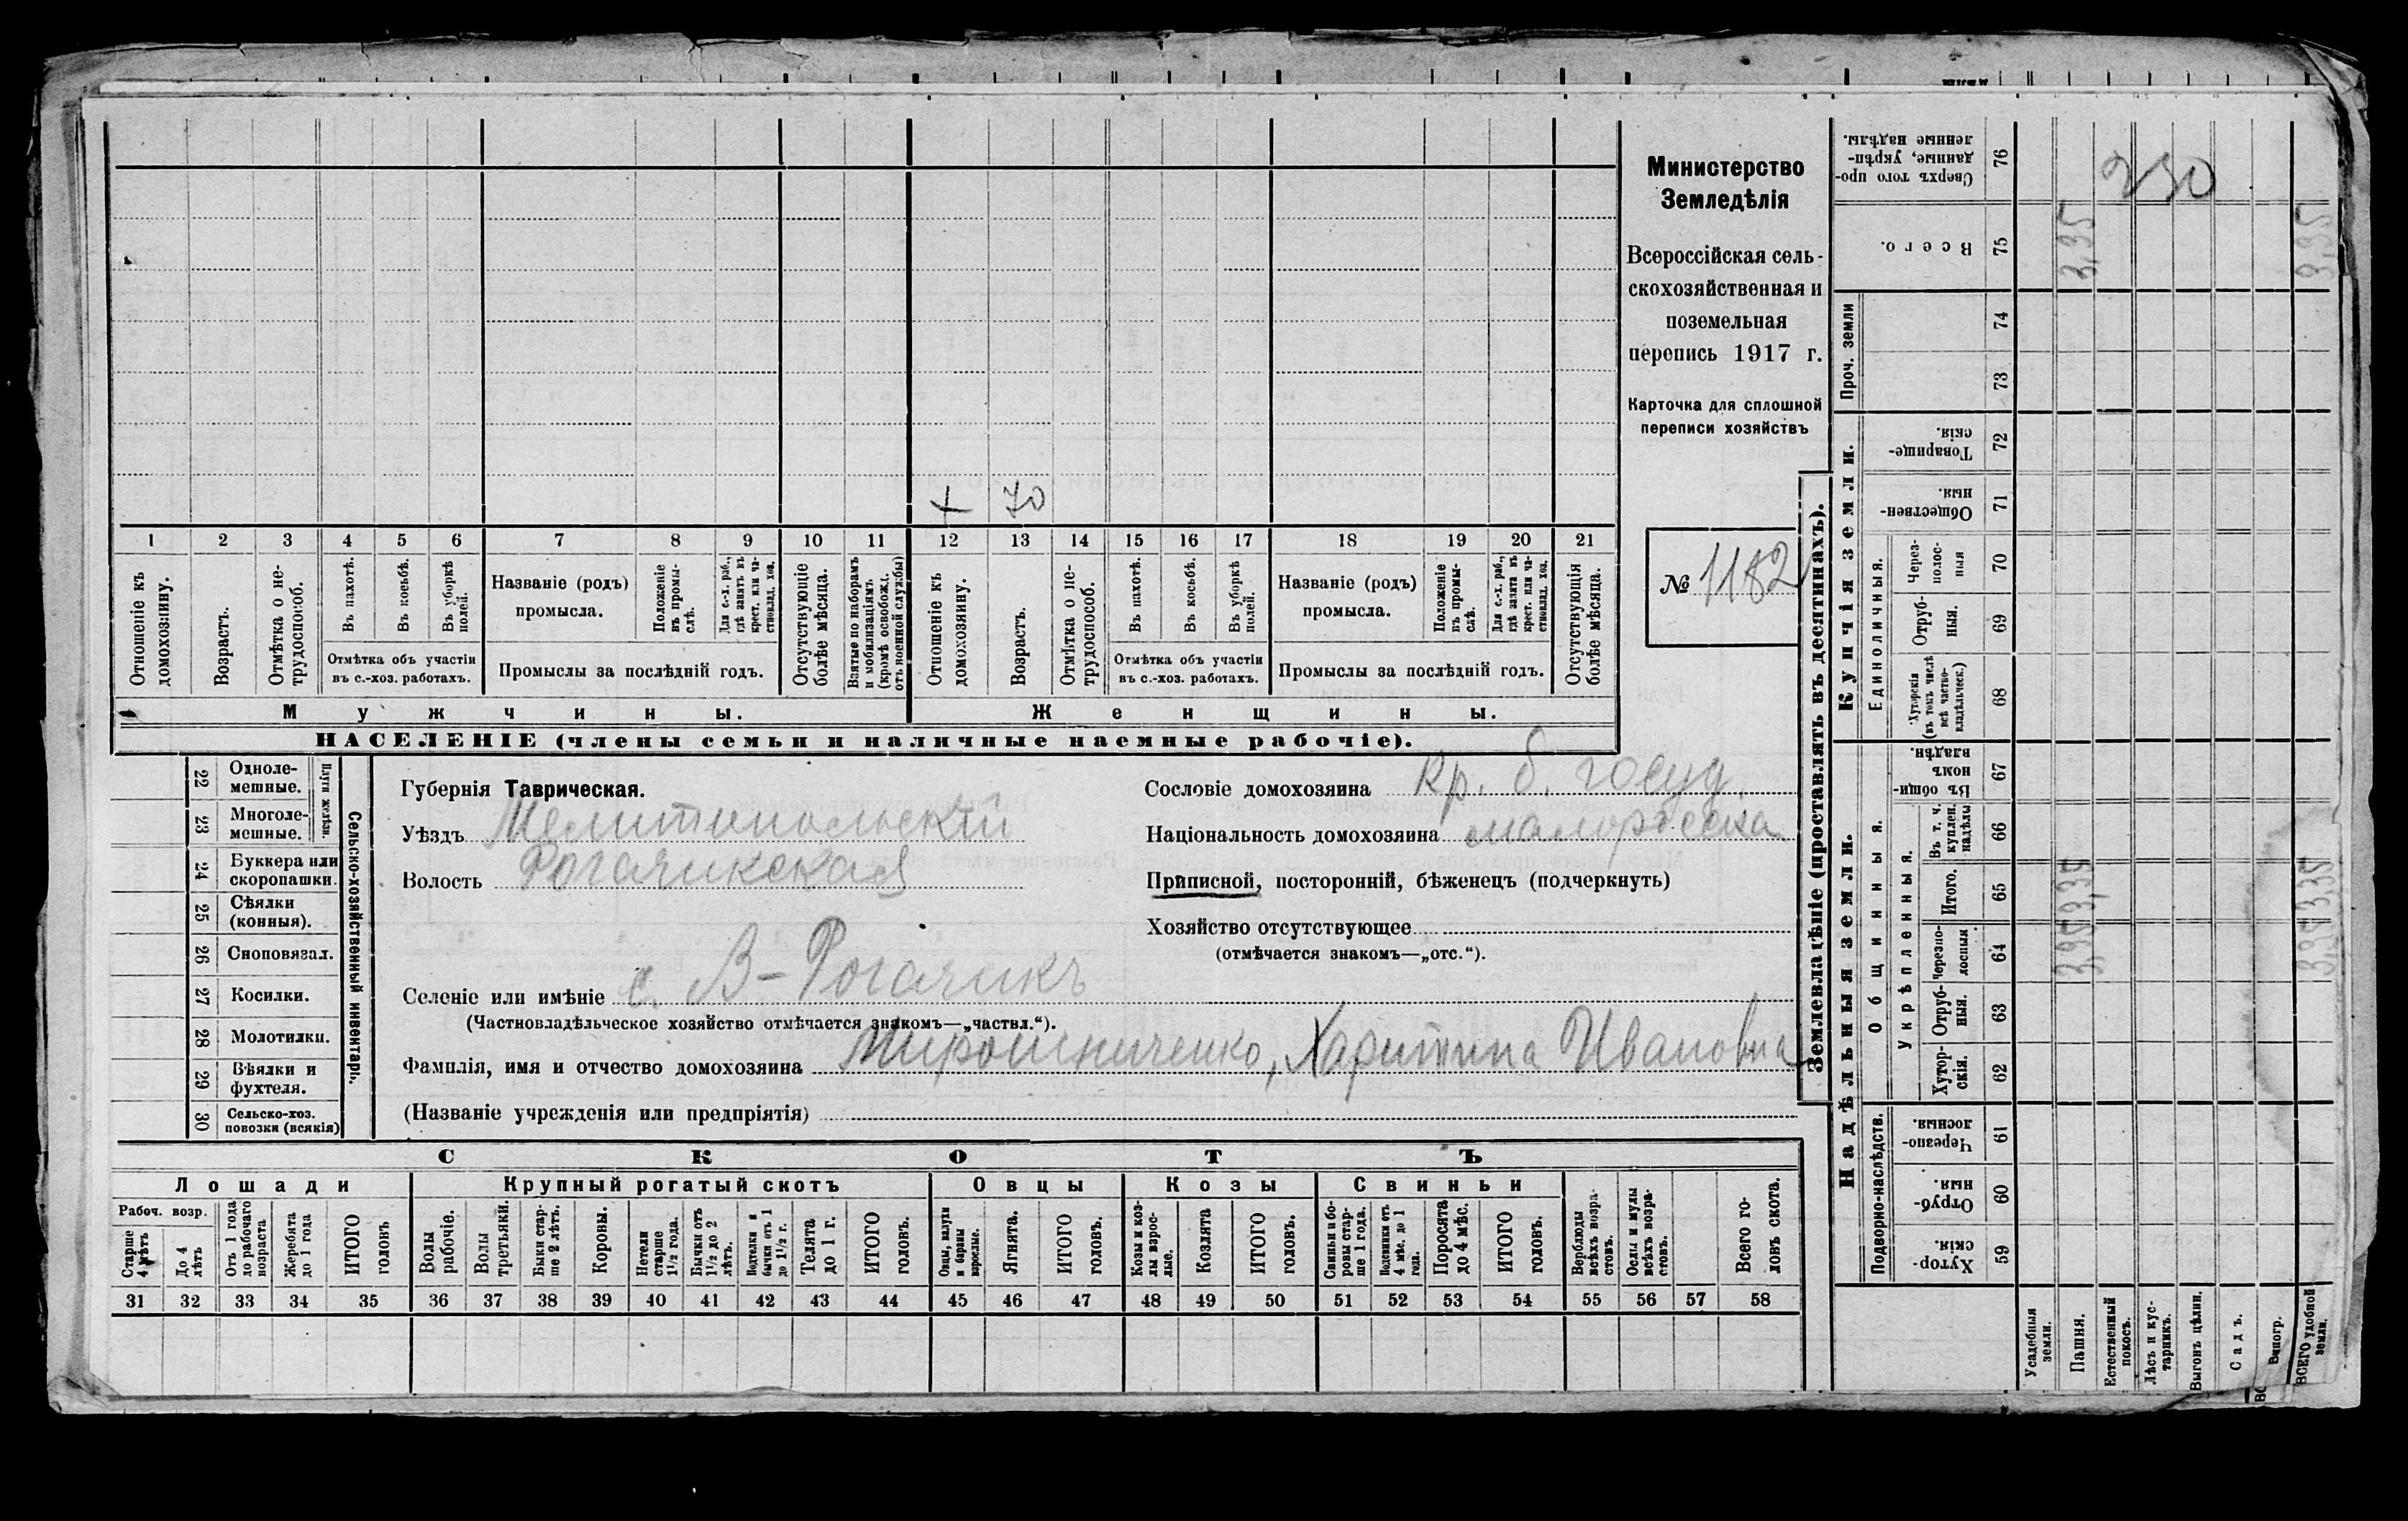 + 70
1 2 3 4 5 6 7 8 9 10 11 12 13 14 15 16 17 18 19 20 21
Отношеніе къ домохозяину.
Возрастъ.
Отмѣтка о не-
трудоспособ.
Въ пахотѣ.
Въ косьбѣ.
Въ уборкѣ
полей.
Отмѣтка объ участіи
въ с.-хоз. работахъ.
Названіе (родъ)
промысла.
Положеніе
въ промы-
слѣ.
Для с.-х. раб.,
гдѣ занятъ въ
крест. или ча-
стновлад. хоз.
Промыслы за послѣдній годъ.
Отсутствующіе
болѣе мѣсяца.
Взятые по наборамъ
и мобилизаціямъ
(кромѣ освобожд.
отъ военной службы)
Отношеніе къ
домохозяину.
Возрастъ.
Отмѣтка о не-
трудоспособ.
Въ пахотѣ.
Въ косьбѣ.
Въ уборкѣ
полей.
Отмѣтка объ участіи
въ с.-хоз. работахъ.
Названіе (родъ)
промысла.
Положеніе
въ промы-
слѣ.
Для с.-х. раб.,
гдѣ занята въ
крест. или ча-
стновлад. хоз.
Промыслы за послѣдній годъ.
Отсутствующія
болѣе мѣсяца.
Мужчины.
Женщины.
НАСЕЛЕНІЕ (члены семьи и наличные наемные рабочіе).
Министерство
Земледѣлія
Всероссійская сель-
скохозяйственная и
поземельная
перепись 1917 г.
Карточка для сплошной
переписи хозяйствъ
№ 1182
22 Одноле-
мешные.
23 Многоле-
мешные.
Плуги желѣзн.
24 Буккера или
скоропашки.
25 Сѣялки
(конныя).
26 Сноповязал.
27 Косилки.
28 Молотилки.
29 Вѣялки и
фухтеля.
30 Сельско-хоз.
повозки (всякія)
Сельско-хозяйственный инвентарь.
Губернія Таврическая.
Уѣздъ Мелитопольскій
Волость Рогачикская
Селеніе или имѣніе с. В-Рогачикъ
(Частновладѣльческое хозяйство отмѣчается знакомъ—„частвл.“).
Фамилія, имя и отчество домохозяина Мирошниченко, Харитина Ивановна
(Названіе учрежденія или предпріятія)
Сословіе домохозяина Кр. б. госуд.
Національность домохозяина малоросска
Приписной, посторонній, бѣженецъ (подчеркнуть)
Хозяйство отсутствующее
(отмѣчается знакомъ—„отс.“).
СКОТЪ
Лошади
Крупный рогатый скотъ
Овцы
Козы
Свиньи
Рабоч. возр.
Старше
4 лѣтъ
До 4
лѣтъ
Отъ 1 года
до рабочаго
возраста
Жеребята
до 1 года
ИТОГО
головъ
Волы
рабочіе.
Волы
третьяки.
Быки стар-
ше 2 лѣтъ.
Коровы.
Нетели
старше
1½ года.
Бычки отъ
1½ до 2
лѣтъ.
Подтелки и
бычки отъ 1
до 1½ г.
Телята
до 1 г.
ИТОГО
головъ.
Овцы, валухи
и бараны
взрослые.
Ягнята.
ИТОГО
головъ.
Козы и коз-
лы взрос-
лые.
Козлята
ИТОГО
головъ.
Свиньи и бо-
ровы стар-
ше 1 года.
Подсвинки отъ
4 мѣс. до 1
года.
Поросята
до 4 мѣс.
ИТОГО
головъ.
Верблюды
всѣхъ возра-
стовъ.
Ослы и мулы
всѣхъ возра-
стовъ.
Всего го-
ловъ скота.
31 32 33 34 35 36 37 38 39 40 41 42 43 44 45 46 47 48 49 50 51 52 53 54 55 56 57 58
Землевладѣніе (проставлять въ десятинахъ).
Сверхъ того про-
данные, укрѣп-
ленные надѣлы.
76
230
Всего.
75
3,35
3,35
Проч. земли
74
73
Купчія земли.
Товарище-
скія.
72
Обществен-
ныя.
71
Единоличныя.
Через-
полос-
ныя
70
Отруб-
ныя.
69
Хуторскія
(въ томъ числѣ
всѣ частно-
владѣльческ.)
68
Надѣльныя земли.
Общинныя.
Въ общи-
номъ
владѣн.
67
Укрѣпленныя.
Въ т. ч.
куплен.
надѣлы
66
Итого.
65
3,35
3,35
Черезпо-
лосныя
64
3,35
3,35
Отруб-
ныя.
63
Хутор-
скія.
62
Подворно-наслѣдств.
Черезпо-
лосныя.
61
Отруб-
ныя.
60
Хутор-
скія.
59
Усадебныя
земли.
Пашня.
Естественный
покосъ.
Лѣсъ и кус-
тарникъ.
Выгонъ цѣлин.
Садъ.
Виногр.
ВСЕГО удобной
земли.